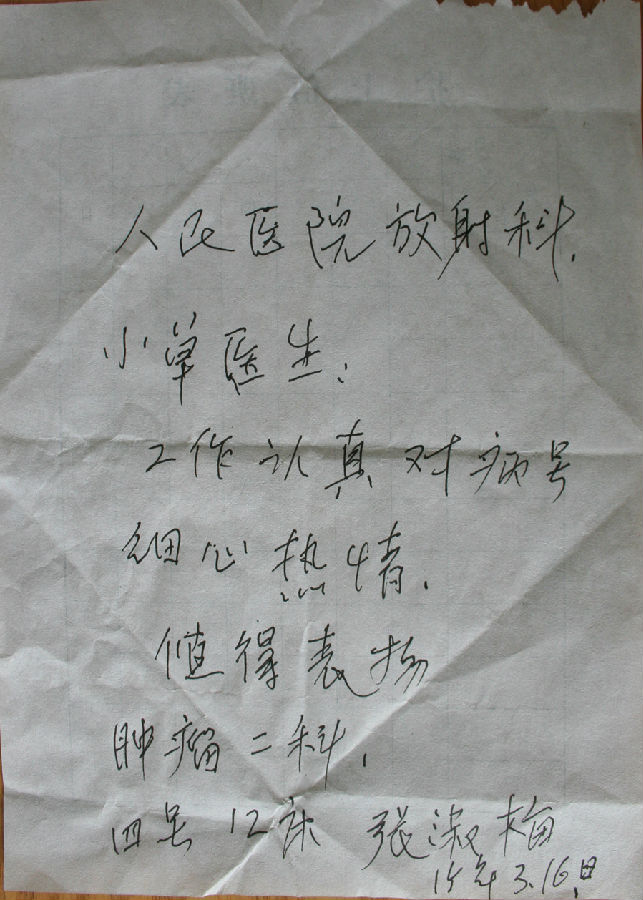 人民医院放射科.
小单医生:
工作认真对病号
细心热情.
值得表扬
肿瘤二科.
四号12床 張淑梅
15年3.16日